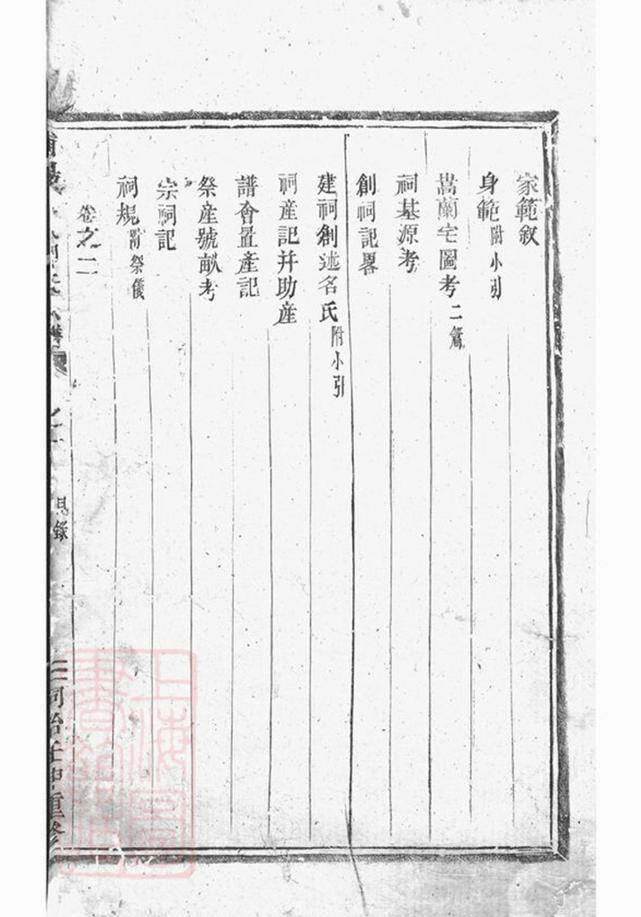 家範敘
身範附小引
嵩蘭宅圖考二篇
祠基源考
創祠記畧
建祠創述名氏附小引
祠產記并助產
譜會置產記
祭產號畝考
宗祠記
祠規附祭儀
卷之二
目錄
同治壬申重修
上海圖書館